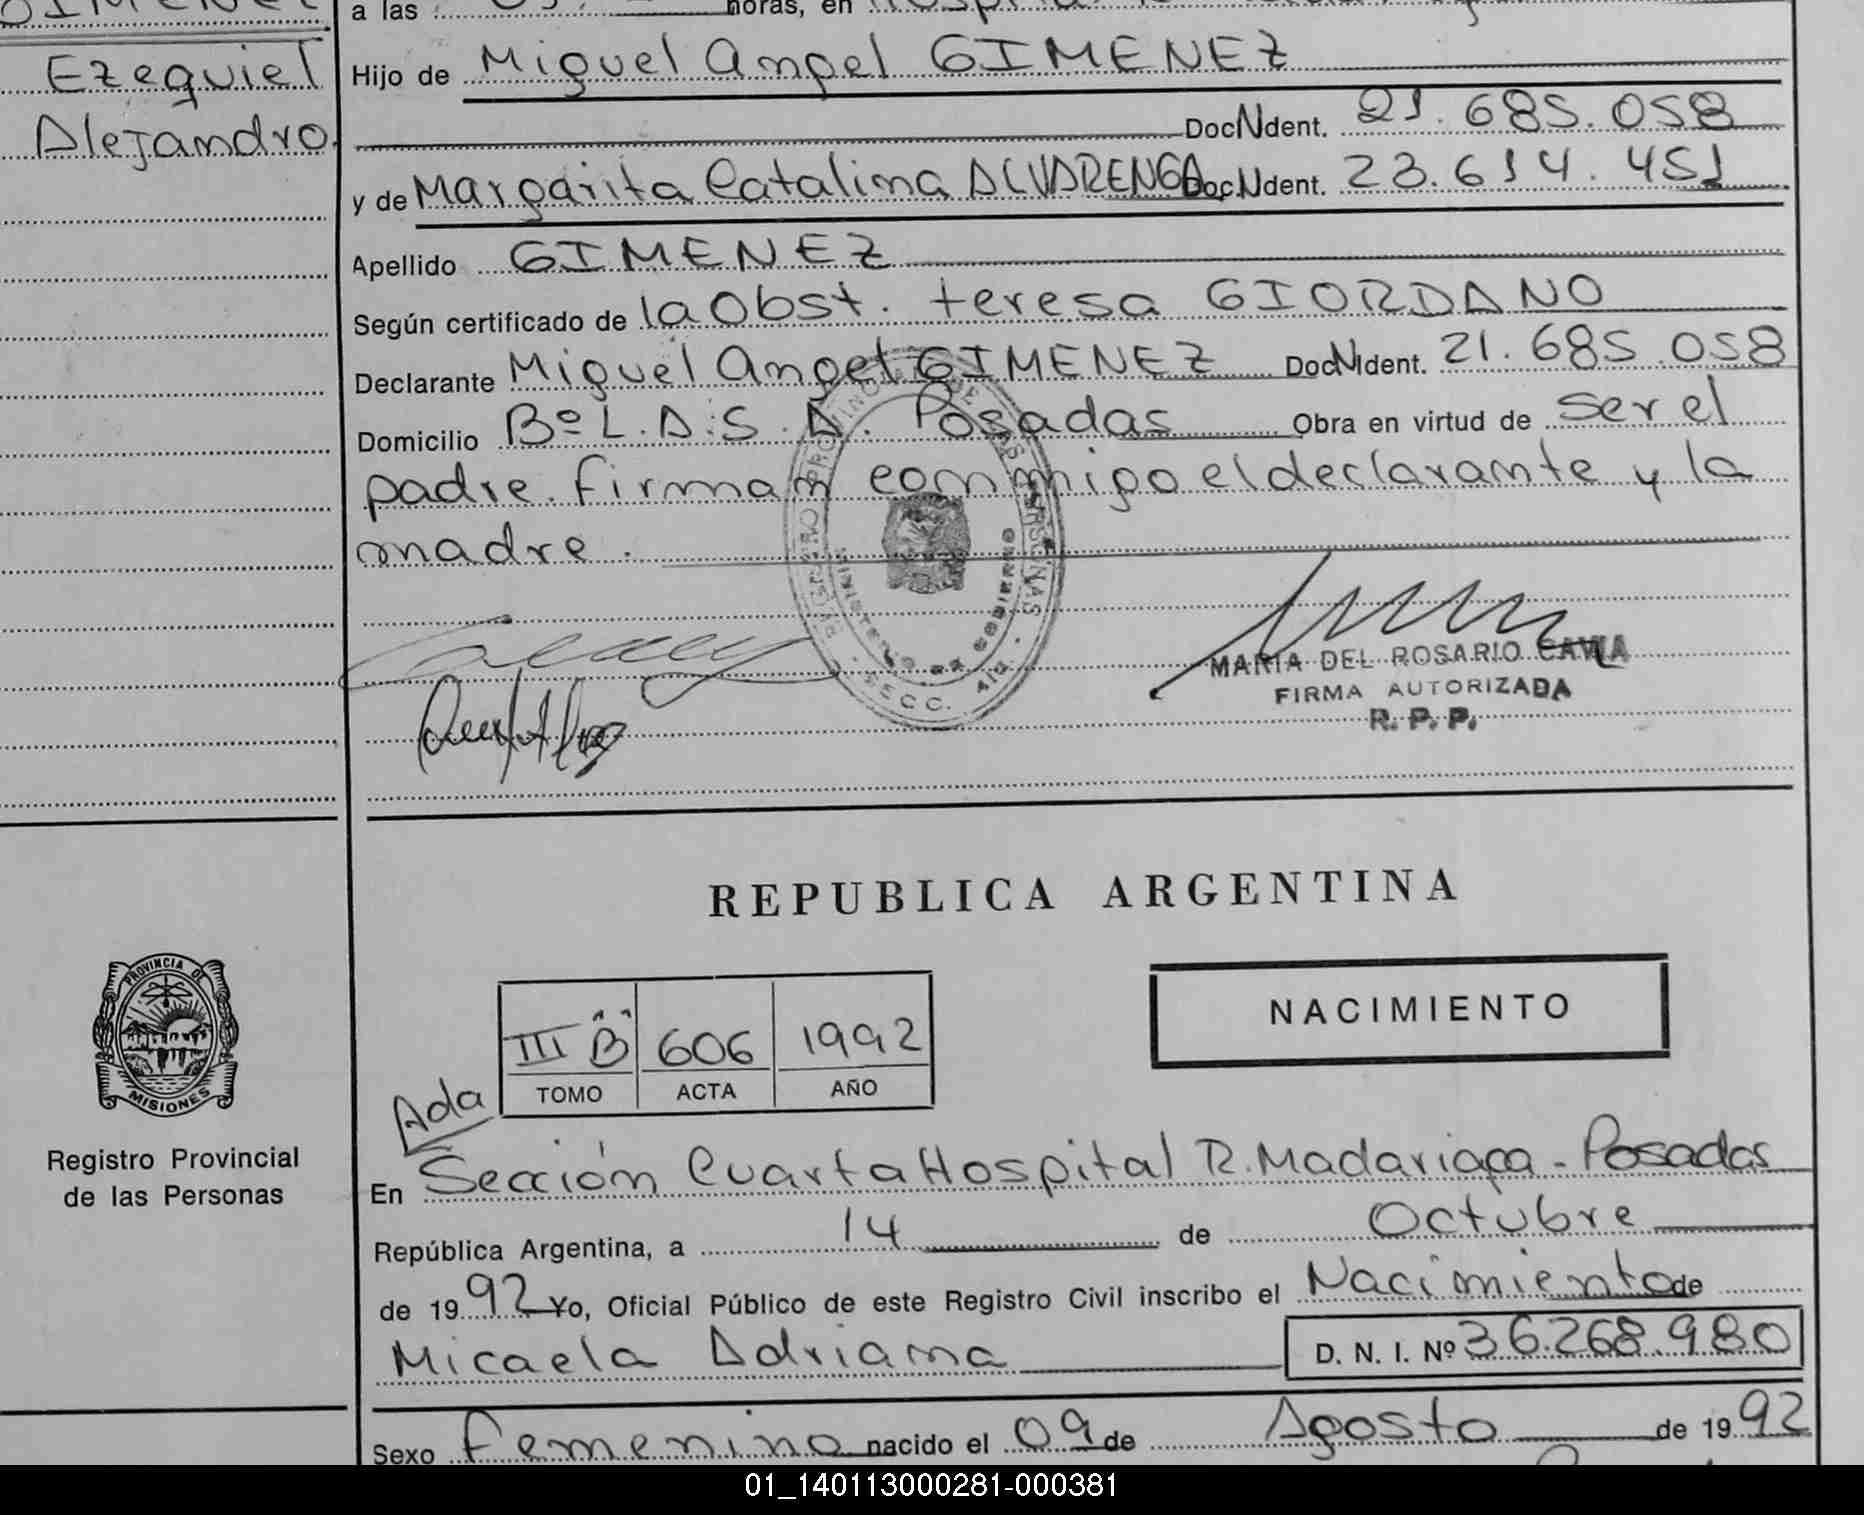 GIMENEZ
Ezequiel
Alejandro
a las horas, en
Hijo de Miguel Angel GIMENEZ
Doc N Ident. 21.685.058
y de Margarita Catalina ALVARENGA Doc N Ident. 23.614.451
Apellido GIMENEZ
Según certificado de la Obst. teresa GIORDANO
Declarante Miguel Angel GIMENEZ Doc N Ident. 21.685.058
Domicilio Bº L.A.S.A. Posadas Obra en virtud de ser el
padre. firman conmigo el declarante y la
madre.
MARIA DEL ROSARIO
FIRMA AUTORIZADA
R. P. P.
REPUBLICA ARGENTINA
NACIMIENTO
III B 606 1992
TOMO ACTA AÑO
Ada
PROVINCIA DE
MISIONES
Registro Provincial
de las Personas
En Sección Cuarta Hospital R. Madariaga - Posadas
República Argentina, a 14 de Octubre
de 1992 Yo, Oficial Público de este Registro Civil inscribo el Nacimiento de
Micaela Adriana D. N. I. Nº 36.268.980
Sexo femenino nacido el 09 de Agosto de 1992
01_140113000281-000381